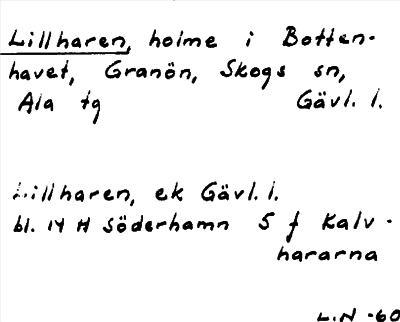 Lillharen, holme i Botten-
havet, Granön, Skogs sn,
Ala tg Gävl. l.
Lillharen, ek Gävl. l.
bl. 14 H Söderhamn 5 f Kalv-
hararna
L.N -60